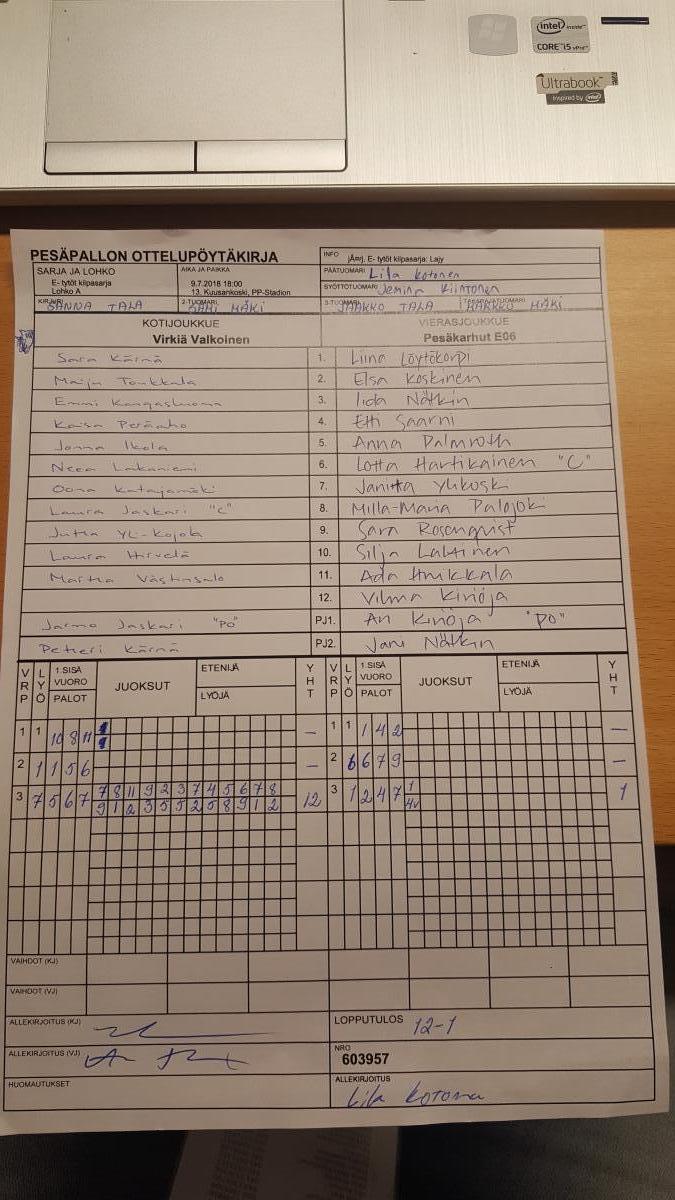 intel inside™
CORE™ i5 vPro™
Ultrabook™
Inspired by intel
PESÄPALLON OTTELUPÖYTÄKIRJA
INFO jÄmrj. E- tytöt kilpasarja: Lajy
SARJA JA LOHKO
E- tytöt kilpasarja
Lohko A
AIKA JA PAIKKA
9.7.2018 18:00
13. Kuusankoski, PP-Stadion
PÄÄTUOMARI Lila Kotonen
SYÖTTÖTUOMARI Jemina Kiintonen
KIRJURI SANNA TALA
2-TUOMARI SAMI MÄKI
3-TUOMARI JAAKKO TALA
MARKKO MÄKI
KOTIJOUKKUE
Virkiä Valkoinen
VIERASJOUKKUE
Pesäkarhut E06
Sara Kärnä 1. Liina Löytökorpi
Maiju Tonkkala 2. Elsa Koskinen
Emmi Kangasluoma 3. Iida Nätkin
Kaisa Peräaho 4. Etti Saarni
Jonna Ikola 5. Anna Palmroth
Neea Lakaniemi 6. Lotta Hartikainen "C"
Oona Katajamäki 7. Janitta Ylikoski
Laura Jaskari "C" 8. Milla-Maria Palojoki
Jutta Yli-Kojola 9. Sara Rosenqvist
Laura Hirvelä 10. Silja Lahtinen
Martta Västinsalo 11. Ada Huikkala
12. Vilma Kirioja
Jarmo Jaskari "PO" PJ1. Ari Kirioja "PO"
Petteri Kärnä PJ2. Jani Nätkin
VRP LYÖ 1.SISÄ VUORO PALOT JUOKSUT ETENIJÄ LYÖJÄ YHT VRP LYÖ 1.SISÄ VUORO PALOT JUOKSUT ETENIJÄ LYÖJÄ YHT
1 1 10 8 11 – 1 1 1 4 2 –
2 1 1 5 6 – 2 6 6 7 9 –
3 7 5 6 7 7 8 11 9 2 3 7 4 5 6 7 8 12 3 1 2 4 7 1 1
9 1 2 3 5 5 2 5 8 9 1 2 4v
VAIHDOT (KJ)
VAIHDOT (VJ)
ALLEKIRJOITUS (KJ)
LOPPUTULOS 12-1
ALLEKIRJOITUS (VJ)
NRO
603957
HUOMAUTUKSET
ALLEKIRJOITUS
Lila Kotona